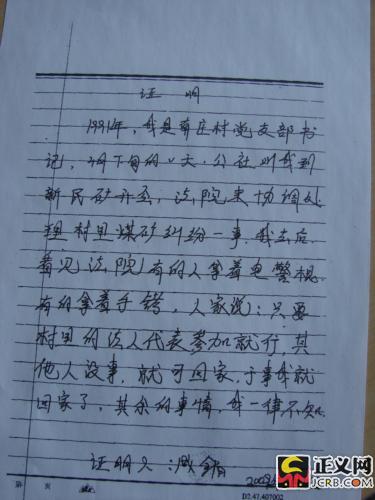 证明
1991年，我是前庄村党支部书
记，4月下旬的一天，公社叫我到
新民矿开会，法院来协调处
理村里煤矿纠纷一事，我去后
看见法院有的人拿着电警棍
有的拿着手铐，人家说：只要
村里的法人代表参加就行，其
他人没事，就可回家，于事我就
回家了，其余的事情，我一律不知
证明人：
2009
第 页
D2.47.407002
正义网
JCRB.COM